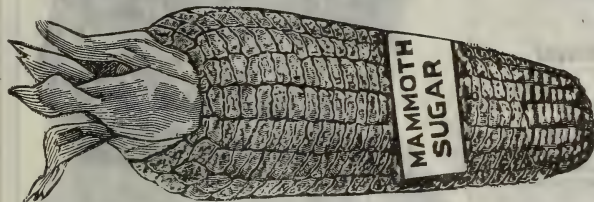 MAMMOTH
SUGAR